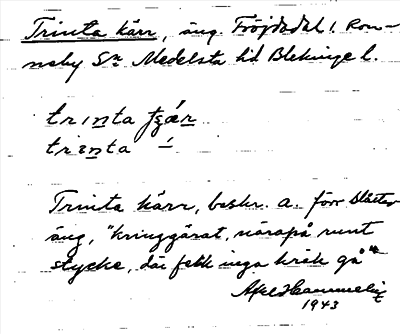 Trinta kärr, äng. Fröjdadal, Ron-
neby Sn Medelsta hd Blekinge l.
trinta
trinta
Trinta kärr, beskr. a. förr slåtter
äng, "kringgärat, närapå runt
stycke, där fekk inga kräk gå"
Axel Hammelin
1943